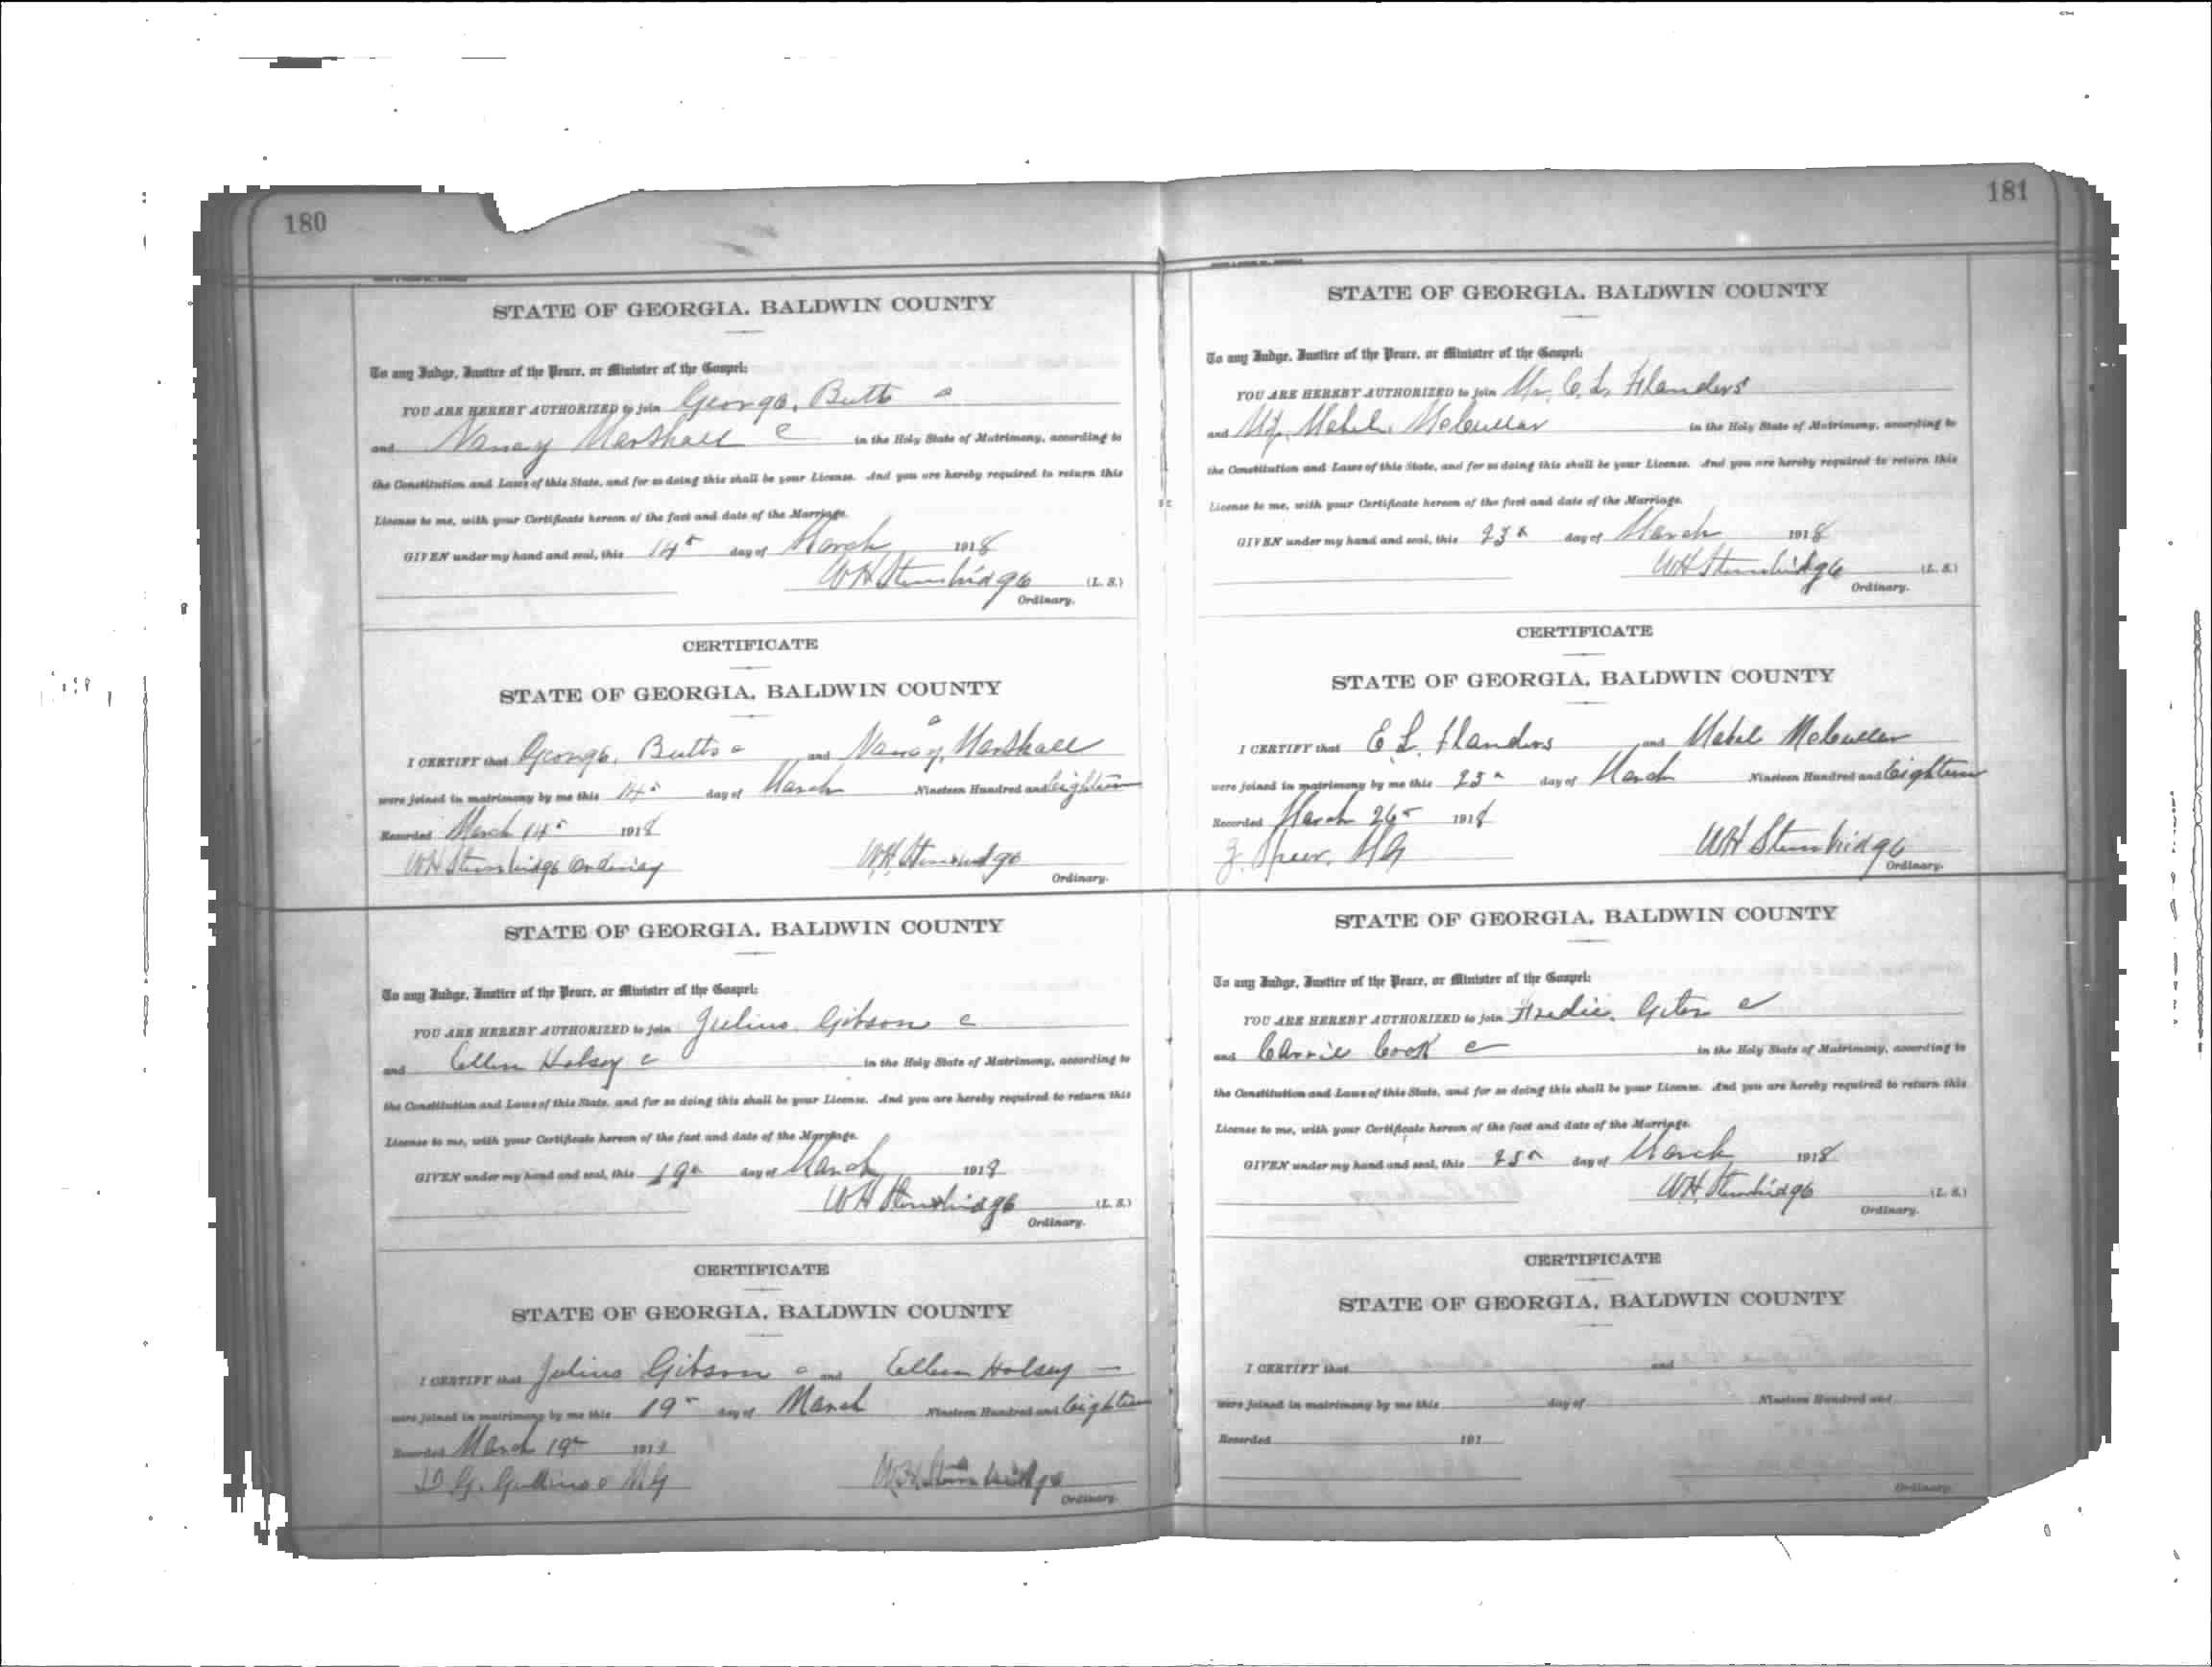 180
STATE OF GEORGIA. BALDWIN COUNTY
To any Judge, Justice of the Peace, or Minister of the Gospel:
YOU ARE HEREBY AUTHORIZED to join George, Butts c
and Nancy Marshall c in the Holy State of Matrimony, according to
the Constitution and Laws of this State, and for so doing this shall be your License. And you are hereby required to return this
License to me, with your Certificate hereon of the fact and date of the Marriage.
GIVEN under my hand and seal, this 14 day of March 1918
WH Stembridge (L. S.)
Ordinary.
CERTIFICATE
STATE OF GEORGIA. BALDWIN COUNTY
I CERTIFY that George, Butts c and Nancy, Marshall c
were joined in matrimony by me this 14 day of March Nineteen Hundred and Eighteen
Recorded March 14 1918
WH Stembridge Ordinary W.H. Stembridge
Ordinary.
STATE OF GEORGIA. BALDWIN COUNTY
To any Judge, Justice of the Peace, or Minister of the Gospel:
YOU ARE HEREBY AUTHORIZED to join Julius Gibson c
and Ellen Holsey c in the Holy State of Matrimony, according to
the Constitution and Laws of this State, and for so doing this shall be your License. And you are hereby required to return this
License to me, with your Certificate hereon of the fact and date of the Marriage.
GIVEN under my hand and seal, this 19 day of March 1918
WH Stembridge (L. S.)
Ordinary.
CERTIFICATE
STATE OF GEORGIA. BALDWIN COUNTY
I CERTIFY that Julius Gibson c and Ellen Holsey
were joined in matrimony by me this 19 day of March Nineteen Hundred and Eighteen
Recorded March 19 1918
M.G W.H. Stembridge
Ordinary.
181
STATE OF GEORGIA. BALDWIN COUNTY
To any Judge, Justice of the Peace, or Minister of the Gospel:
YOU ARE HEREBY AUTHORIZED to join Mr. E. L. Flanders
and Mabel McCullar in the Holy State of Matrimony, according to
the Constitution and Laws of this State, and for so doing this shall be your License. And you are hereby required to return this
License to me, with your Certificate hereon of the fact and date of the Marriage.
GIVEN under my hand and seal, this 23 day of March 1918
WH Stembridge (L. S.)
Ordinary.
CERTIFICATE
STATE OF GEORGIA. BALDWIN COUNTY
I CERTIFY that E L. Flanders and Mabel McCullar
were joined in matrimony by me this 23 day of March Nineteen Hundred and Eighteen
Recorded March 26 1918
J. Speer, MG WH Stembridge
Ordinary.
STATE OF GEORGIA. BALDWIN COUNTY
To any Judge, Justice of the Peace, or Minister of the Gospel:
YOU ARE HEREBY AUTHORIZED to join c
and Carrie Cook c in the Holy State of Matrimony, according to
the Constitution and Laws of this State, and for so doing this shall be your License. And you are hereby required to return this
License to me, with your Certificate hereon of the fact and date of the Marriage.
GIVEN under my hand and seal, this 25 day of March 1918
W.H. Stembridge (L. S.)
Ordinary.
CERTIFICATE
STATE OF GEORGIA. BALDWIN COUNTY
I CERTIFY that and
were joined in matrimony by me this day of Nineteen Hundred and
Recorded 191
Ordinary.